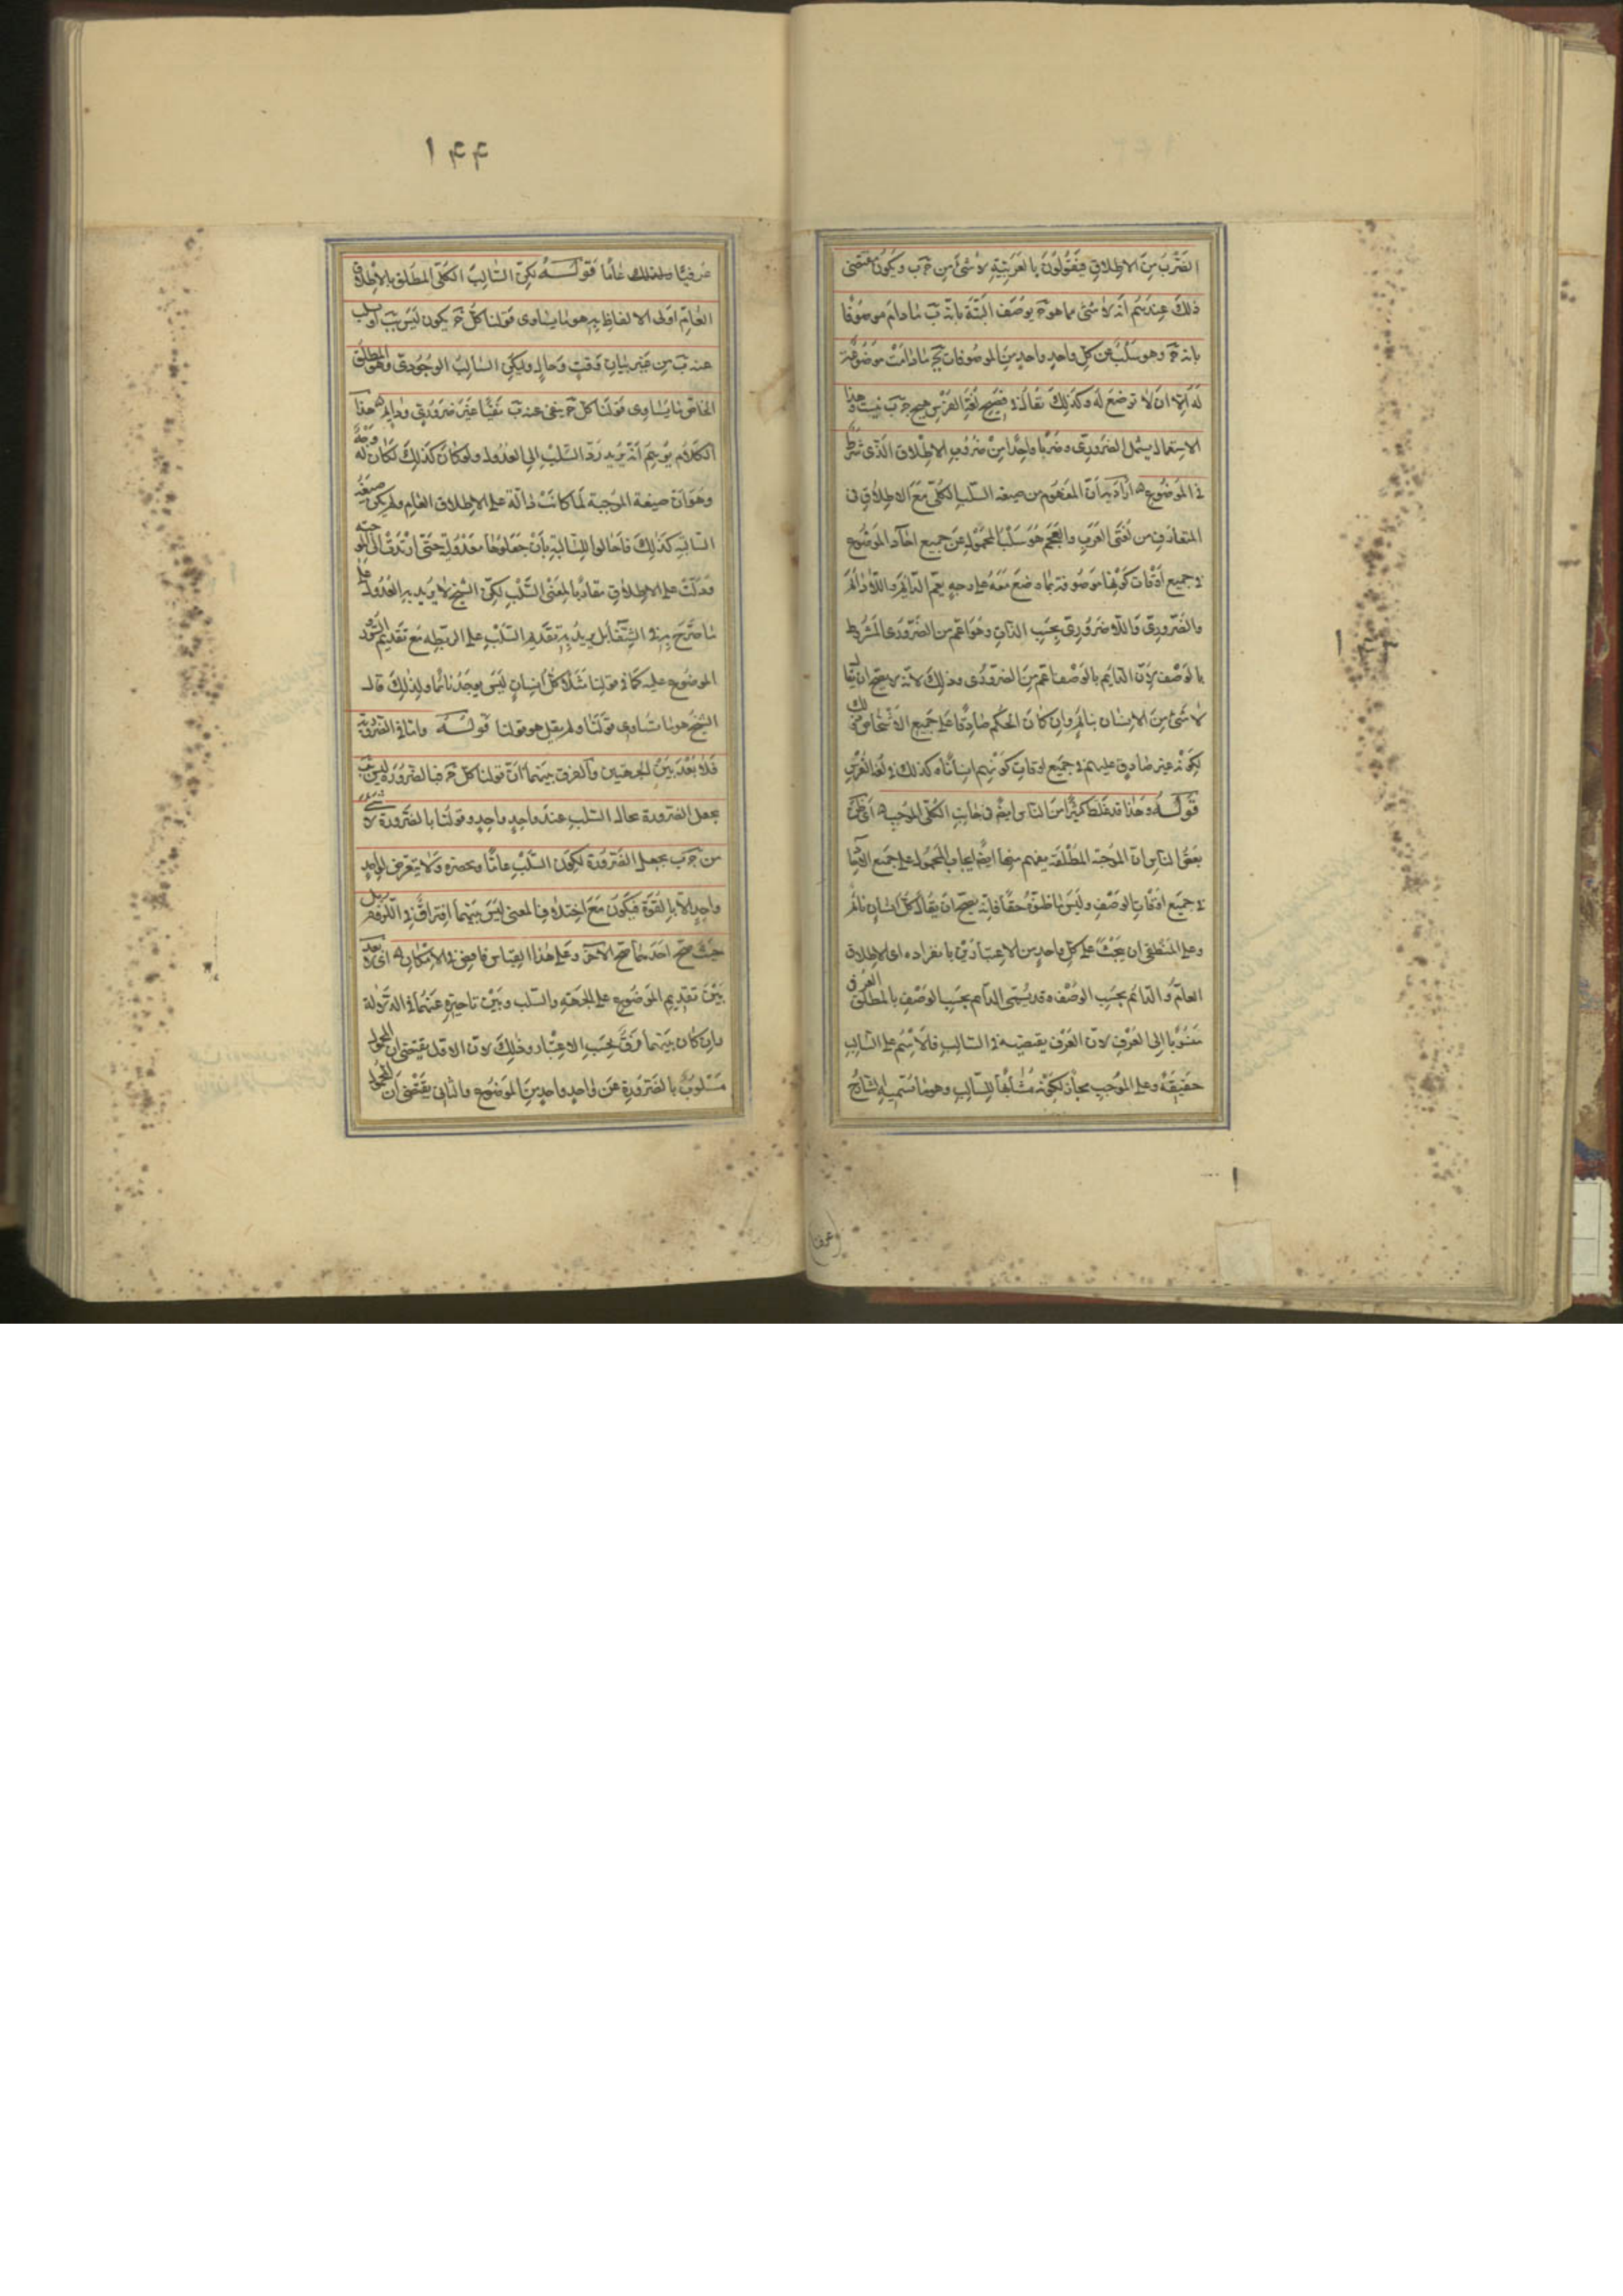 الضرب من الاطلاق فيقولون بالعربية لا شئ من ج ب ويكون مقتضى
ذلك عندهم انه لا شئ مما هو ج يوصف البتة بانه ب ما دام موصوفا
بانه ج وهو سلب عن كل واحد واحد من الموصوفات بج ما دامت موصوفة
له الا ان لا توضع له وكذلك يقال في فصيح لغة الفرس هيج ج ب نيست وهذا
الاستعمال يشمل الضرورى وضربا واحدا من ضروب الاطلاق الذى شرط
فى الموضوع اراد به ان المفهوم من صيغة السلب الكلى مع الاطلاق فى
المتعارف من لغتى العرب والعجم هو سلب المحمول عن جميع احاد الموضوع
فى جميع اوقات كونها موصوفة بما وضع معه على وجه يعم الدايم واللادايم
والضرورى واللاضرورى بحسب الذات وهو اعم من الضرورى المشروط
بالوصف لان الدايم بالوصف اعم من الضرورى وذلك لانه لا يصح ان يقال
لا شئ من الانسان بنايم وان كان الحكم صادقا على جميع الاشخاص وذلك
لكونه غير صادق عليهم فى جميع اوقات كونهم اناسا وكذلك فى لغة الفرس
قوله وهذا قد غلط كثيرا من الناس ايضا فى جانب الكلى الموجب اى ظن
بعض الناس ان الموجبة المطلقة يفهم منها ايضا ايجاب المحمول على جميع الاحاد
فى جميع اوقات الوصف وليس ما ظنوه حقا فانه يصح ان يقال كل انسان نائم
وعلى المنطقى ان يبحث على كل واحد من الاعتبارين بانفراده اى الاطلاق
العام والدائم بحسب الوصف وقد يسمى الدائم بحسب الوصف بالمطلق العرفى
منسوبا الى العرف لان العرف يقتضيه فى السالب فالاسم على السالب
حقيقة وعلى الموجب مجاز لكونه مشابها للسالب وهو ما سميه الشارح
عرفيا
عرفيا عاما قوله لكن السالب الكلى المطلق بالاطلاق
العام اولى الالفاظ به هو ما يساوى قولنا كل ج يكون ليس ب او سلب
عنه ب من غير بيان وقت وحال وليكن السالب الوجودى وهو المطلق
الخاص ما يساوى قولنا كل ج ينفى عنه ب نفيا غير ضرورى ودايم هذا
الكلام يوهم انه يريد رد السلب الى العدول ولو كان كذلك لكان له وجه
وهو ان صيغة الموجبة لما كانت دالة على الاطلاق العام ولم يكن صيغة
السالبة كذلك فاحالوا للسالبة بان جعلوها معدولة حتى ارتدت الى الموجبة
فدلت على الاطلاق مقاربا لمعنى السلب لكن الشيخ لا يريد به العدول على
ما صرح به فى الشفا بل يريد به تقديم السلب على الرابطة مع تقديم السور
الموضوع عليه كما فى قولنا مثلا كل انسان ليس يوجد نائما ولذلك قال
الشيخ هو ما يساوى قولنا ولم يقل هو قولنا قوله واما فى الضرورية
فلا بعد بين الجهتين والفرق بينهما ان قولنا كل ج فبالضرورة ليس ب
يجعل الضرورة بحال السلب عند واحد واحد وقولنا بالضرورة لا شئ
من ج ب يجعل الضرورة لكون السلب عاما ولحصره ولا يتعرض لواحد
واحد الا بالقوة فيكون مع اختلاف المعنى ليس بينهما افتراق فى اللزوم بل
حيث صح احدهما صح الاخر وعلى هذا القياس فاقض فى الامكان اى لا بعد
بين تقديم الموضوع على الجهة والسلب وبين تاخيره عنهما فى الدلالة
وان كان بينهما فرق بحسب الاعتبار وذلك لان الاول يقتضى ان المحمول
مسلوب بالضرورة عن واحد واحد من الموضوع والثانى يقتضى ان المحمول
١۴۴